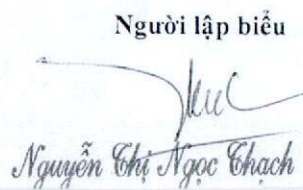 Người lập biểu
Nguyễn Thị Ngọc Thach